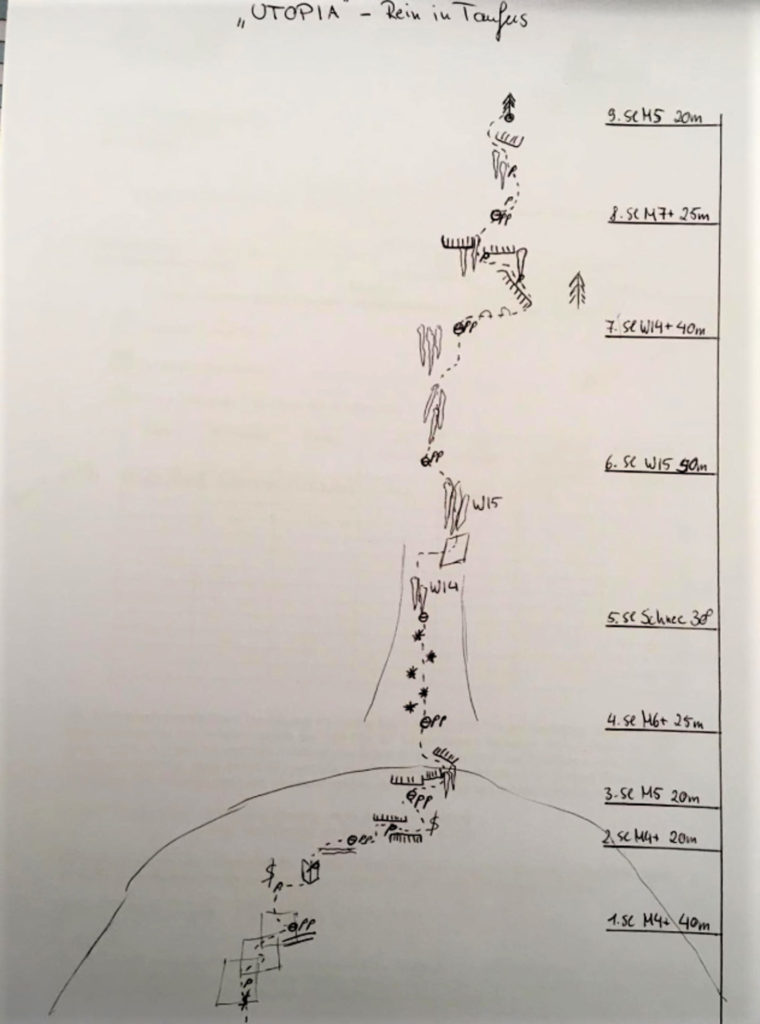 „UTOPIA" - Rein in Taufers
9. SL M5 20m
P
P
PP
8. SL M7+ 25m
P
PP
7. SL WI4+ 40m
PP
6. SL WI5 50m
WI5
WI4
5. SL Schnee 30°
PP
4. SL M6+ 25m
PP
3. SL M5 20m
P
$
PP
2. SL M4+ 20m
$
P
PP
1. SL M4+ 40m
P